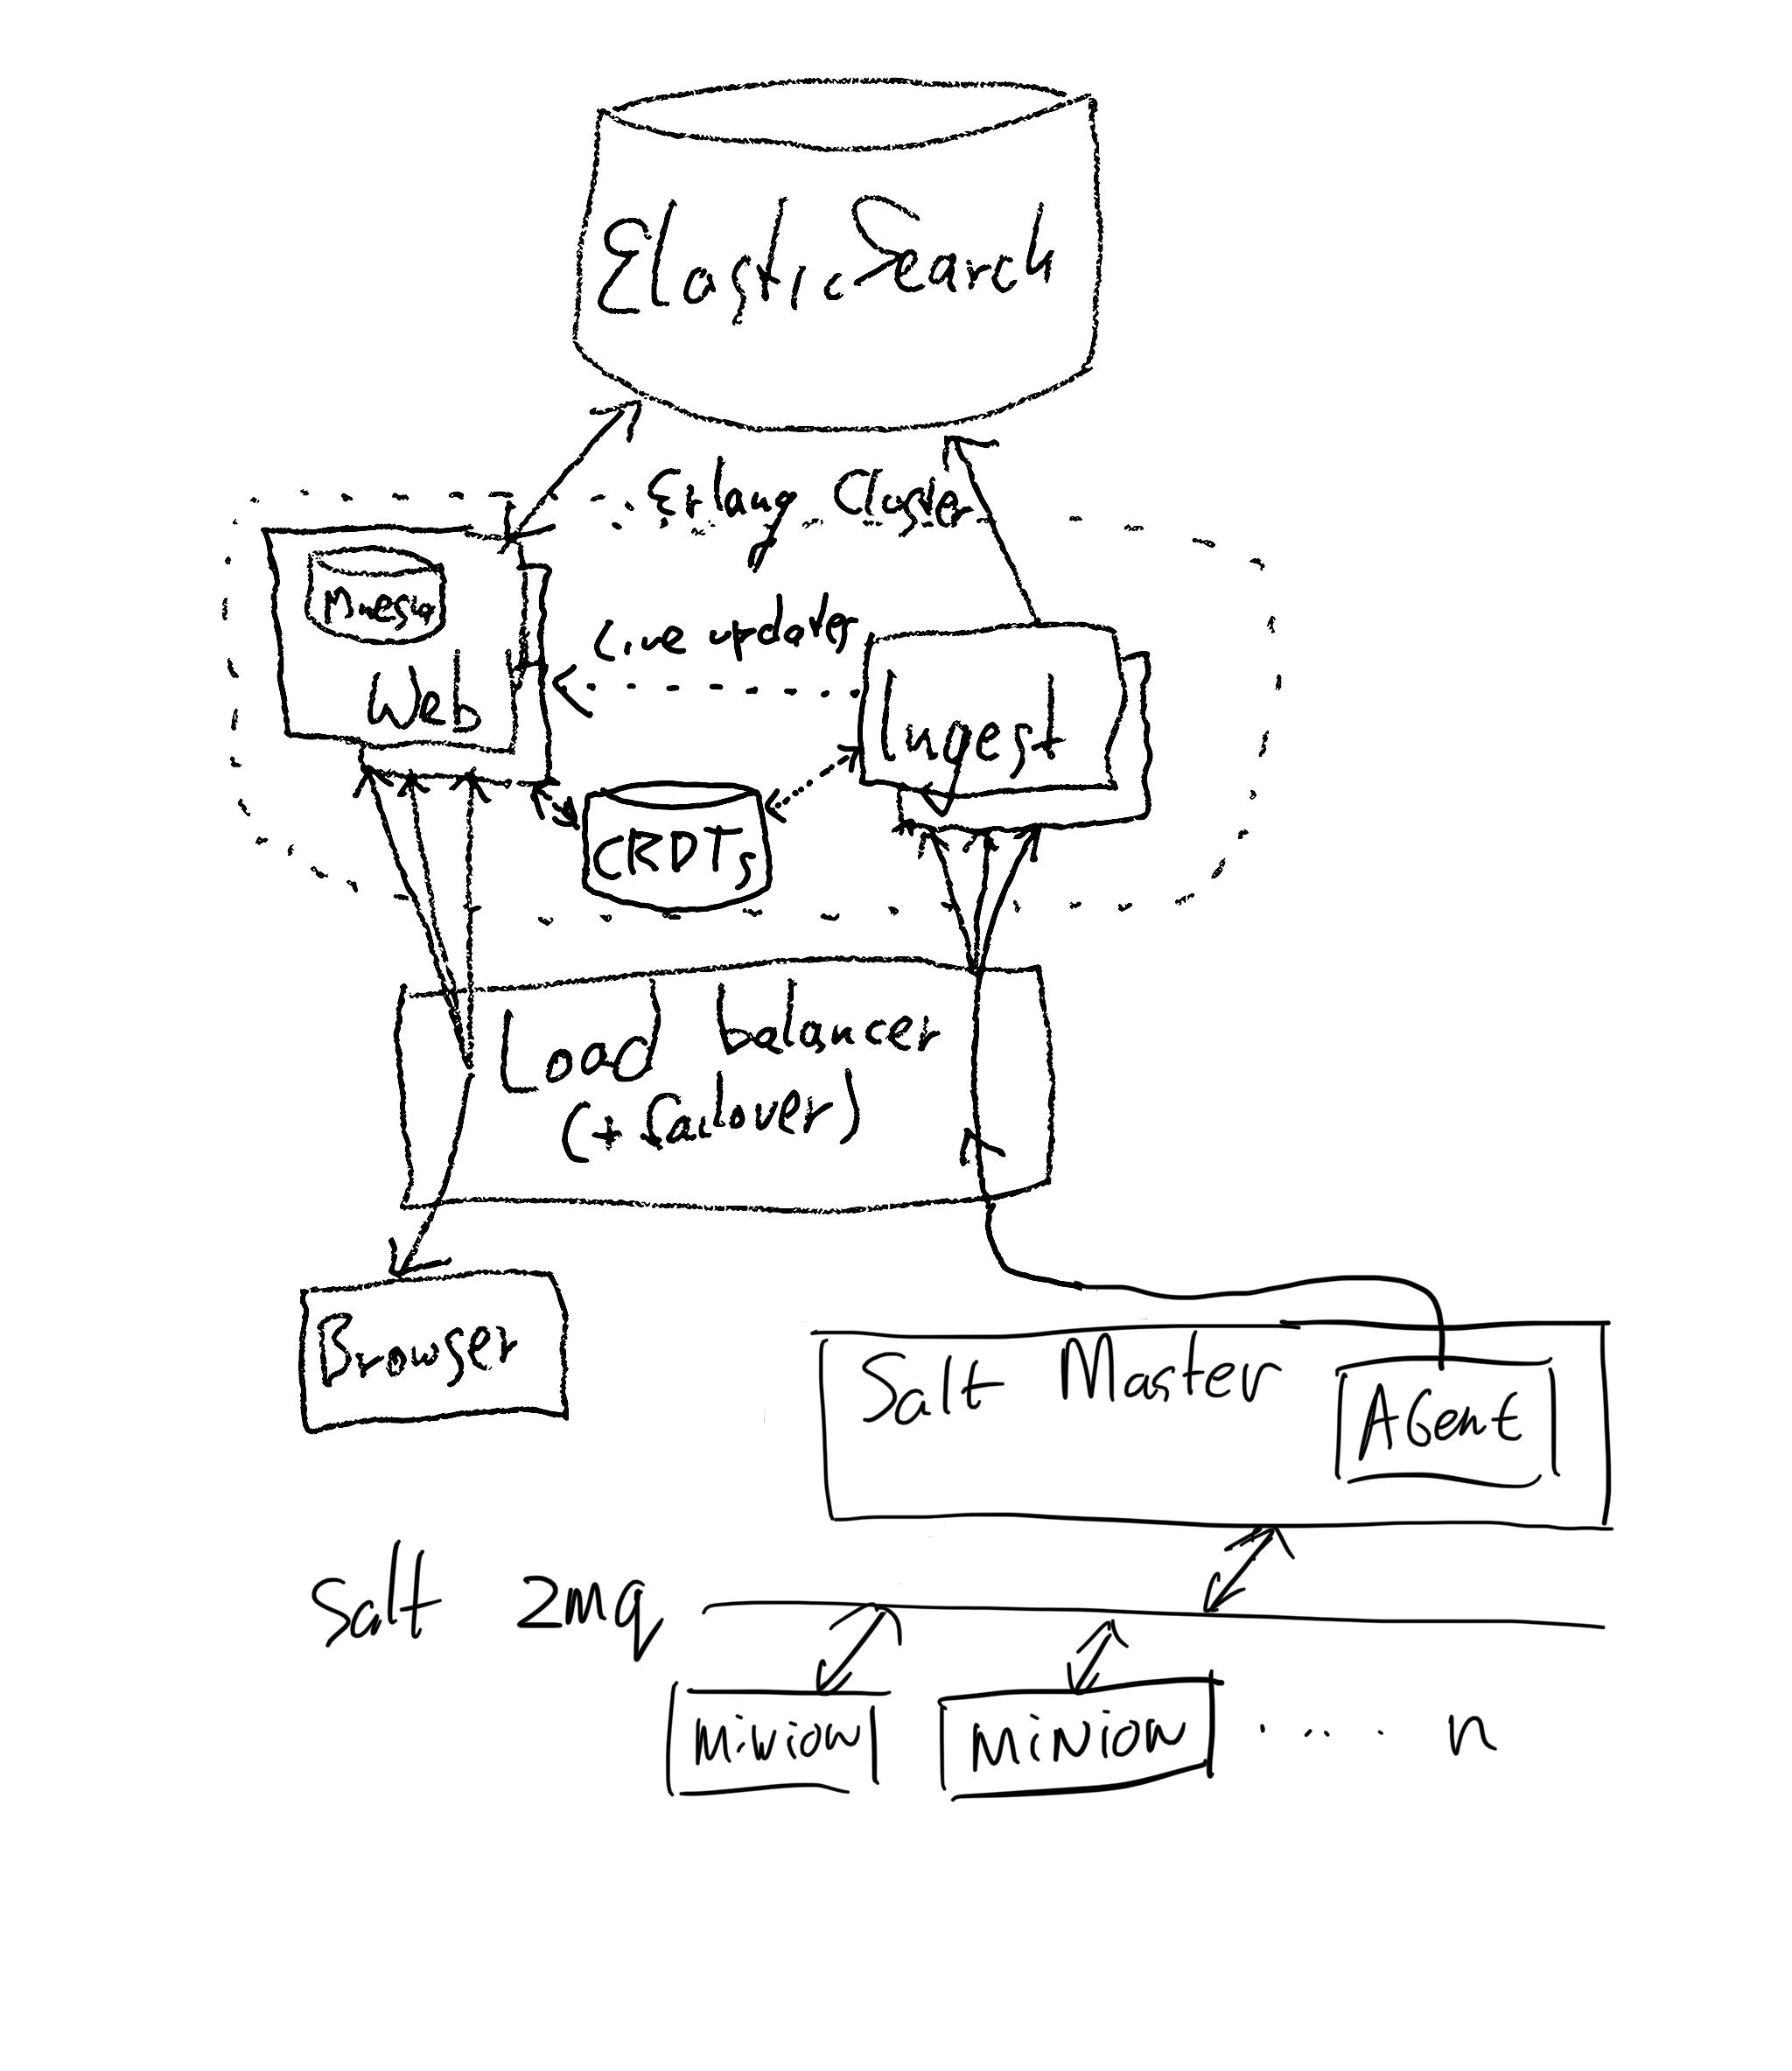 ElasticSearch
Erlang Cluster
Mnesia
Web
Live updates
Ingest
CRDTs
Load balancer
(+ failover)
Browser
Salt Master
AGent
Salt zmq
MiNioN
MiNioN
n